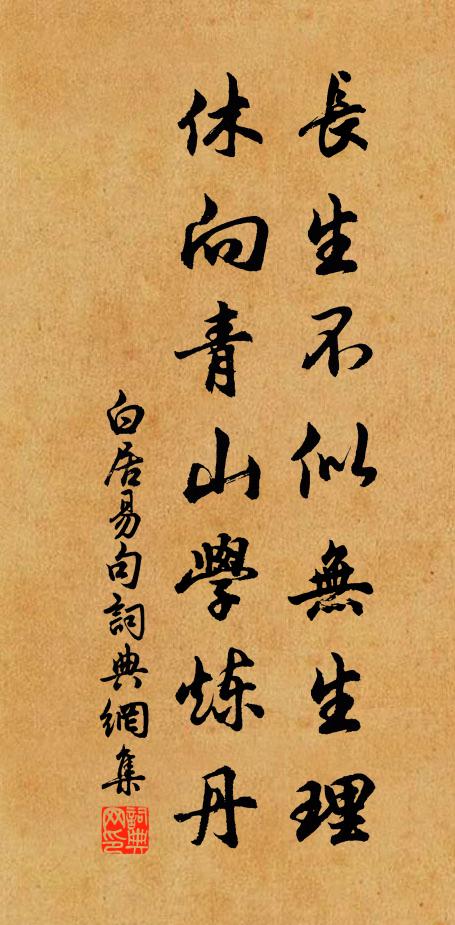 長生不似無生理
休向青山學炼丹
白居易句詞典網集
詞典網印